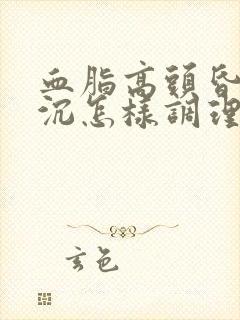 血脂高頭昏
沉怎樣調理
玄色